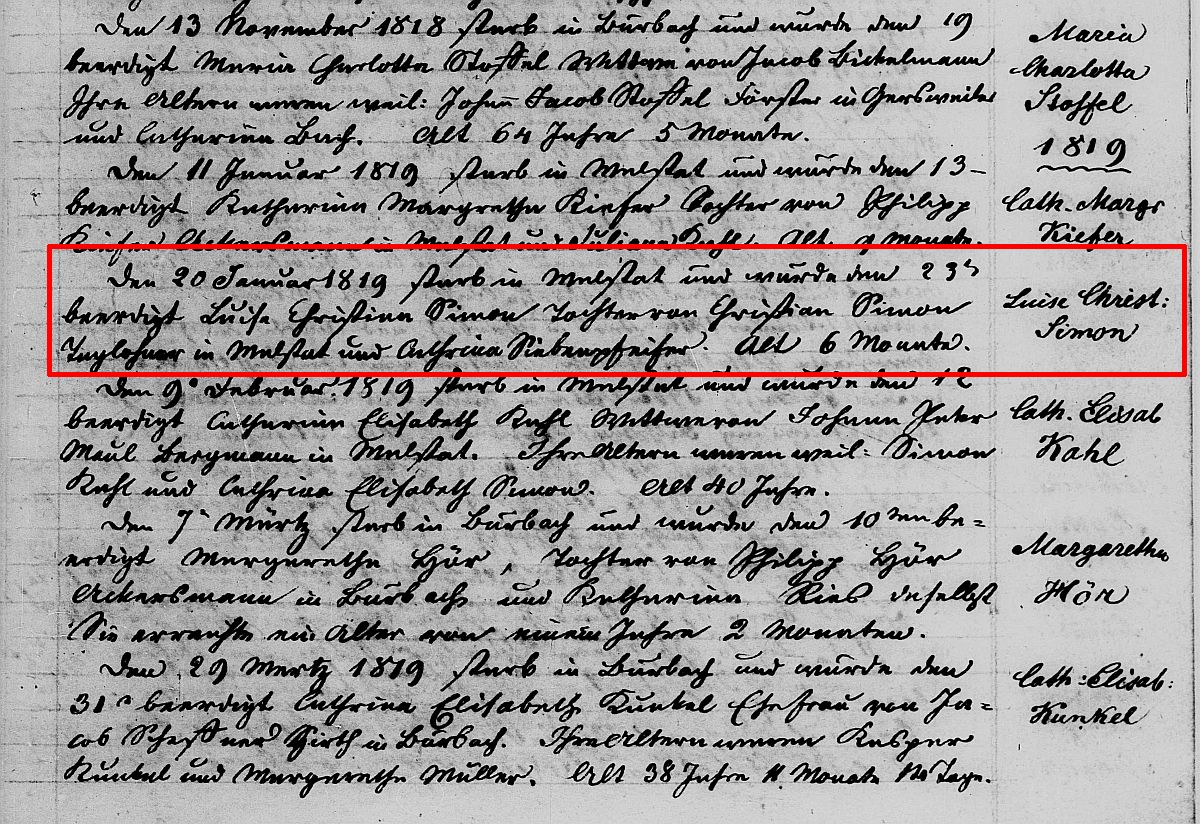 Den 13 November 1818 starb in Burbach und wurde den 19
beerdigt Maria Charlotta Stoffel Wittwe von Jacob Bickelmann
Ihre Altern waren weil: Johann Jacob Stoffel Förster in Gersweiler
und Catharina Bach. Alt 64 Jahre 5 Monate.
Maria
Charlotta
Stoffel
1819
Den 11 Januar 1819 starb in Malstat und wurde den 13
beerdigt Katharina Margretha Kiefer Tochter von Philipp
Kiefer Ackersmann in Malstat und Juliana Kahl. Alt 9 Monate.
Cath. Margr
Kiefer
Den 20 Januar 1819 starb in Malstat und wurde den 23t
beerdigt Luise Christina Simon Tochter von Christian Simon
Taglohner in Malstat und Cathrina Siebenpfeifer. Alt 6 Monate.
Luise Christ:
Simon
Den 9t Februar 1819 starb in Malstat und wurde den 12
beerdigt Catharina Elisabeth Kahl Wittwe von Johann Peter
Maul Bergmann in Malstat. Ihre Altern waren weil: Simon
Kahl und Cathrina Elisabeth Simon. Alt 40 Jahre.
Cath. Elisab
Kahl
Den 7t Märtz starb in Burbach und wurde den 10ten be=
erdigt Margaretha Hör, Tochter von Philipp Hör
Ackersmann in Burbach und Katharina Ries daselbst
Sie erreichte ein Alter von einem Jahre 2 Monaten.
Margaretha
Hör
Den 29 Mertz 1819 starb in Burbach und wurde den
31t beerdigt Cathrina Elisabeth Kunkel Ehefrau von Ja=
cob Schaffner Wirth in Burbach. Ihre Altern waren Kasper
Kunkel und Margaretha Müller. Alt 38 Jahre 11 Monate 14 Tage.
Cath: Elisab:
Kunkel